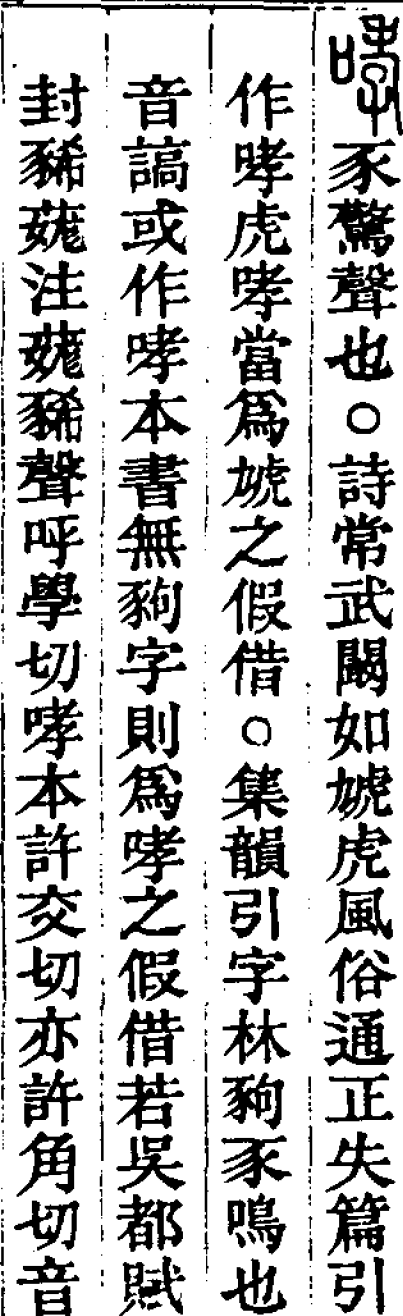 哮豕驚聲也○詩常武闞如虓虎風俗通正失篇引
作哮虎哮當爲虓之假借○集韻引字林豞豕鳴也
音謞或作哮本書無豞字則爲哮之假借若吳都賦
封豨䓤注䓤豨聲呼學切哮本許交切亦許角切音